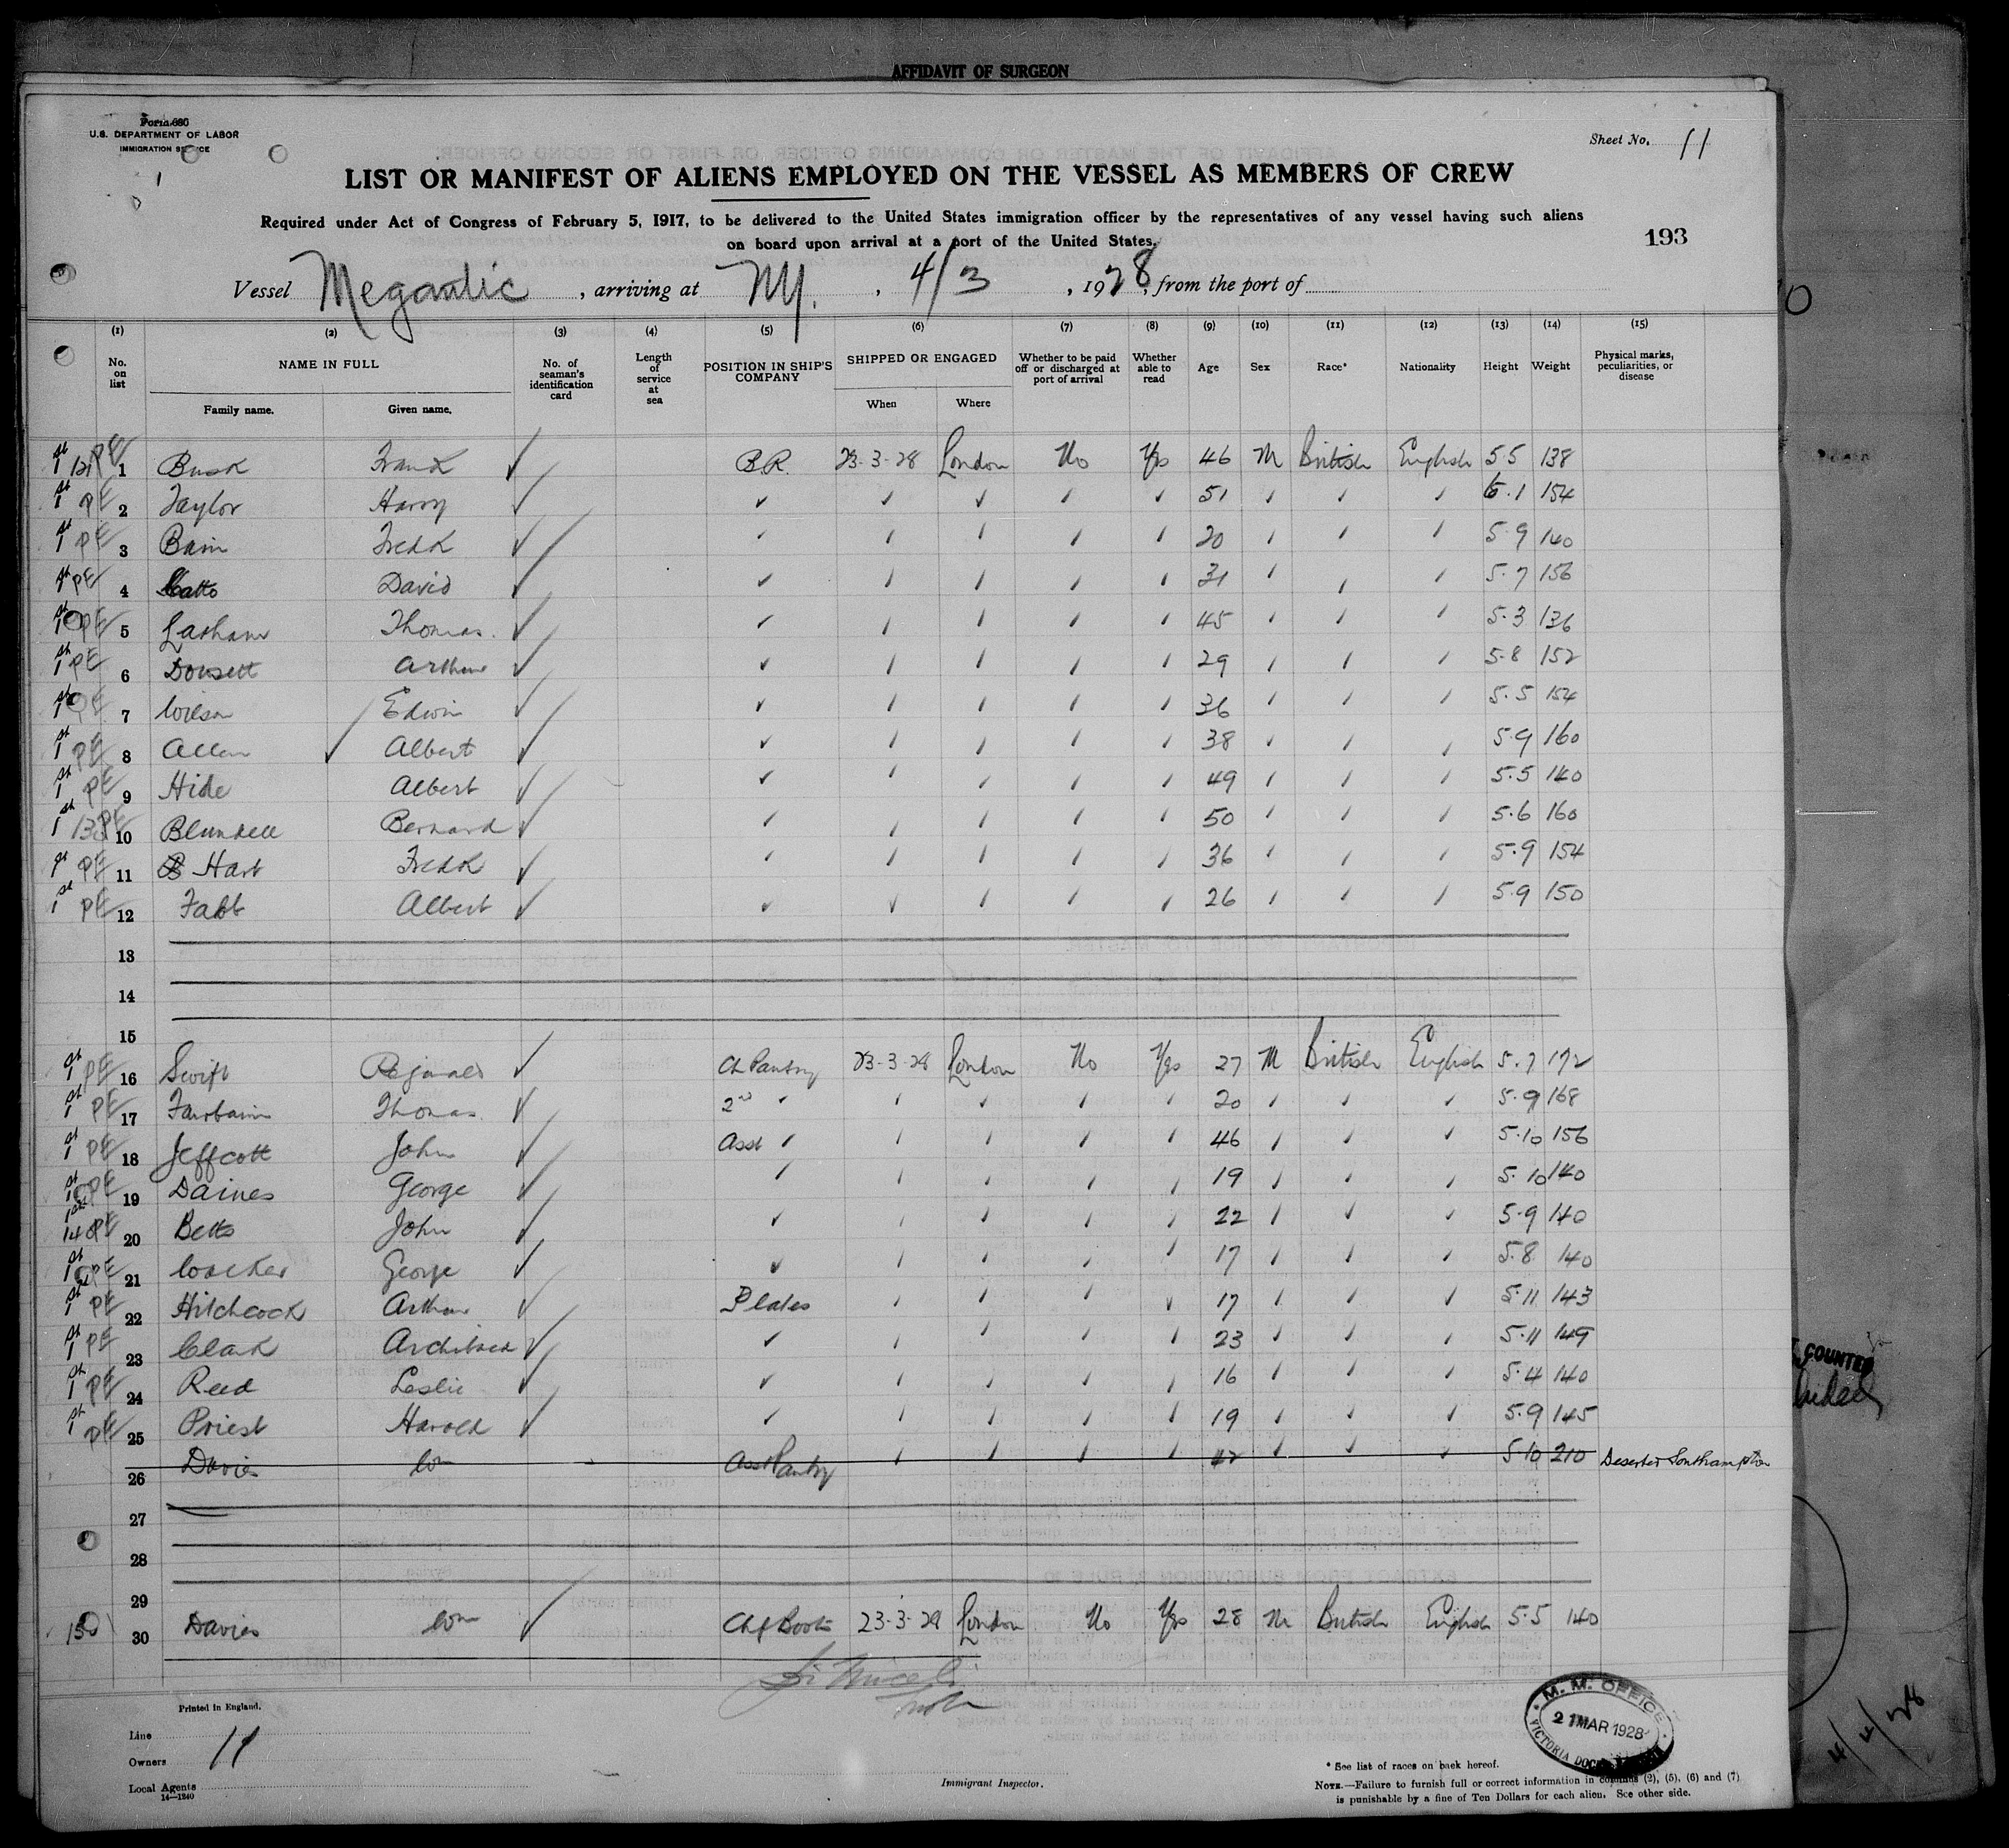 AFFIDAVIT OF SURGEON
Form 680
U.S. DEPARTMENT OF LABOR
IMMIGRATION SERVICE
Sheet No. 11
LIST OR MANIFEST OF ALIENS EMPLOYED ON THE VESSEL AS MEMBERS OF CREW
Required under Act of Congress of February 5, 1917, to be delivered to the United States immigration officer by the representatives of any vessel having such aliens
on board upon arrival at a port of the United States.
193
Vessel Megantic, arriving at NY., 4/3, 1928, from the port of
(1) (2) (3) (4) (5) (6) (7) (8) (9) (10) (11) (12) (13) (14) (15)
No. on list NAME IN FULL Family name. Given name. No. of seaman's identification card Length of service at sea POSITION IN SHIP'S COMPANY SHIPPED OR ENGAGED When Where Whether to be paid off or discharged at port of arrival Whether able to read Age Sex Race* Nationality Height Weight Physical marks, peculiarities, or disease
1st PE 1 Busk Frank ✓ B.R. 23-3-28 London No Yes 46 M British English 5.5 138
1st PE 2 Taylor Harry ✓ 51 5.1 154
1st PE 3 Bain Fredk ✓ 20 5.9 140
1st PE 4 Catto David ✓ 31 5.7 156
1st PE 5 Lasham Thomas. ✓ 45 5.3 136
1st PE 6 Dousett Arthur ✓ 29 5.8 152
1st PE 7 Wilson Edwin ✓ 36 5.5 154
1st PE 8 Allen Albert ✓ 38 5.9 160
1st PE 9 Hide Albert ✓ 49 5.5 140
1st PE 10 Blundell Bernard ✓ 50 5.6 160
1st PE 11 Hart Fredk ✓ 36 5.9 154
1st PE 12 Fabb Albert ✓ 26 5.9 150
13
14
15
1st PE 16 Swift Reginald ✓ Ch Pantry 23-3-28 London No Yes 27 M British English 5.7 172
1st PE 17 Fairbairn Thomas. ✓ 2nd 20 5.9 168
1st PE 18 Jeffcott John ✓ Asst 46 5.10 156
1st PE 19 Daines George ✓ 19 5.10 140
1st 140 PE 20 Betts John ✓ 22 5.9 140
1st PE 21 Coacker George ✓ 17 5.8 140
1st PE 22 Hitchcock Arthur ✓ Plates 17 5.11 143
1st PE 23 Clark Archibald ✓ 23 5.11 149
1st PE 24 Reed Leslie ✓ 16 5.4 140
1st PE 25 Priest Harold ✓ 19 5.9 145
26 Davies Wm Asst Pantry 42 5.10 210 Deserted Southampton
27
28
29
150 30 Davies Wm ✓ Chf Boots 23-3-28 London No Yes 28 M British English 5.5 140
Printed in England.
Line
Owners 11
Local Agents
14—1240
Immigrant Inspector.
* See list of races on back hereof.
NOTE.—Failure to furnish full or correct information in columns (2), (5), (6) and (7)
is punishable by a fine of Ten Dollars for each alien. See other side.
M. M. OFFICE
21 MAR 1928
VICTORIA DOCK
COUNTER
4/4/28